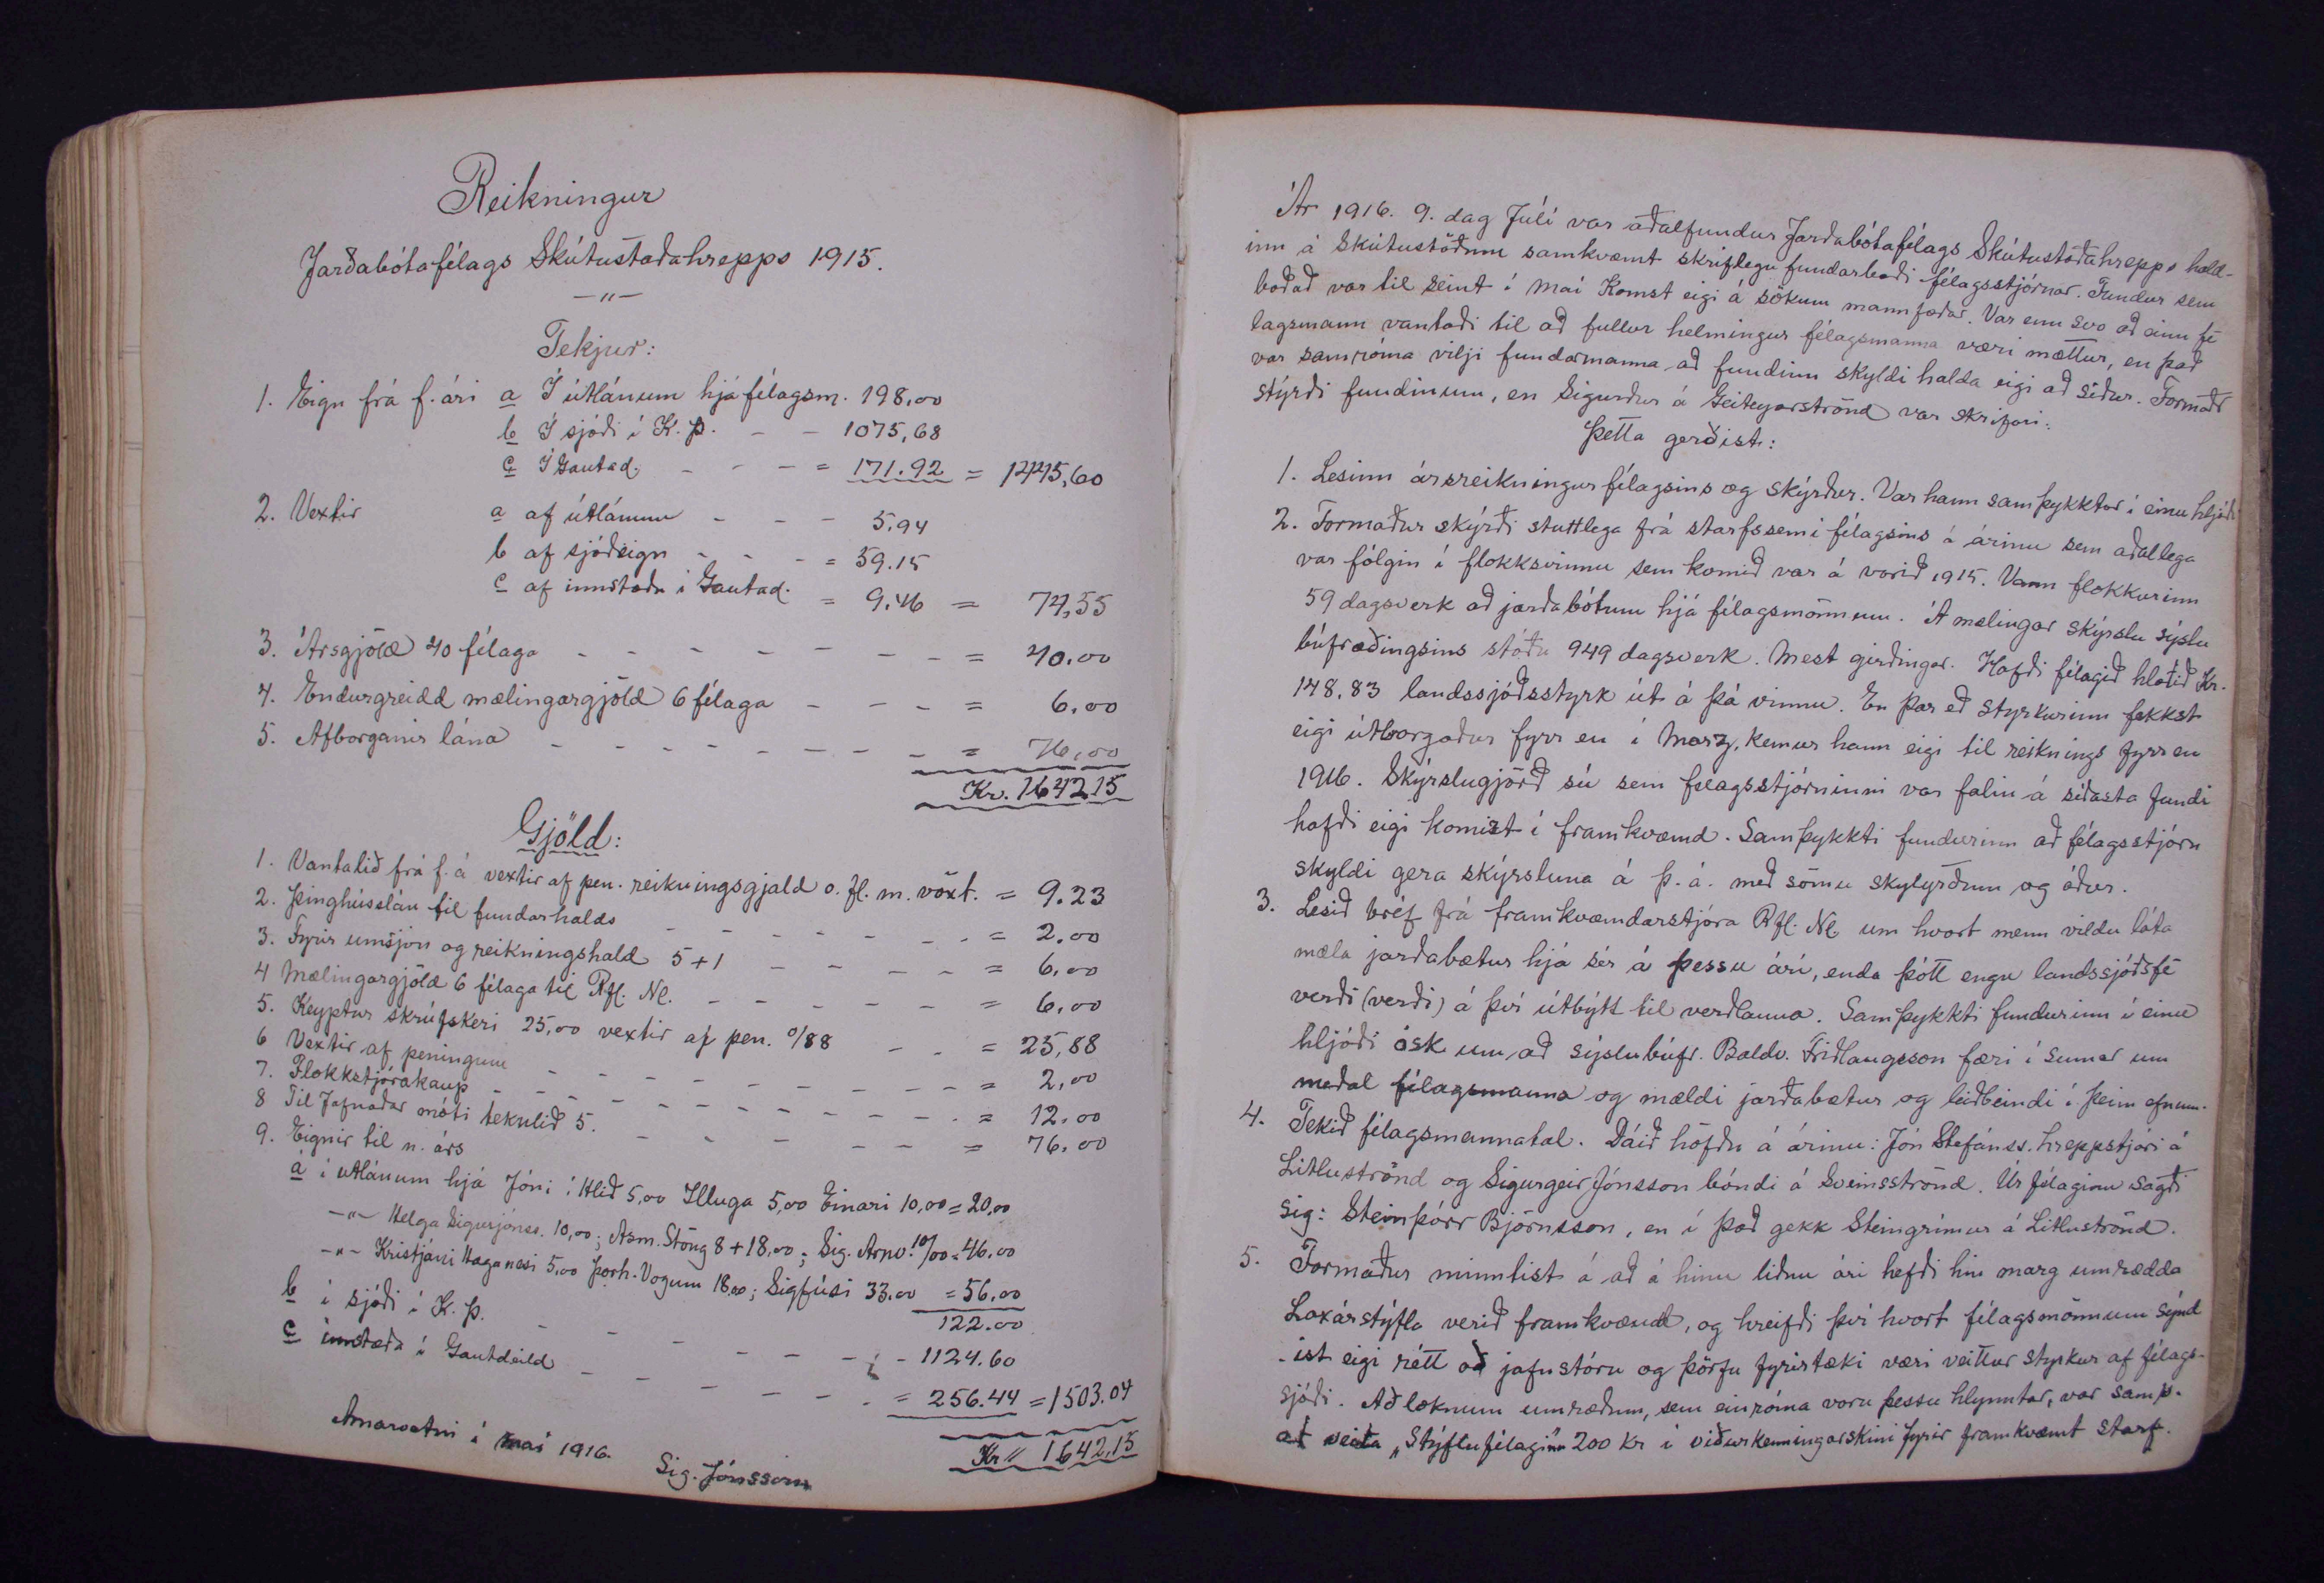 Reikningur
Jarðabótafélags Skútustaðahrepps 1915.
—"—
Tekjur:
1. Eign frá f. ári a Í útlánum hjá félagsm. 198,00
b Í sjóði í K. Þ. - - 1075,68
c Í Gautad. - - - = 171.92 = 1445,60
2. Vextir a af útlánum - - - 5,94
b af sjóðeign - - - = 59.15
c af innstæðu í Gautad. = 9.46 = 74,55
3. Ársgjöld 40 félaga - - - - - - - = 40.00
4. Endurgreidd mælingargjöld 6 félaga - - - = 6,00
5. Afborganir lána - - - - - - - - = 76,00
Kr. 1642.15
Gjöld:
1. Vantalið frá f. á vextir af pen. reikningsgjald o. fl. m. vöxt. = 9.23
2. Þinghúslán til fundarhalds - - - - - - - = 2.00
3. Fyrir umsjón og reikningshald 5+1 - - - - = 6,00
4 Mælingargjöld 6 félaga til Rfl. Nl. - - - - - = 6,00
5. Keyptur skrúfskeri 25,00 vextir af pen. 0/88 - - = 25,88
6 Vextir af peningum - - - - - - - - - = 2,00
7. Flokkstjórakaup - - - - - - - - - = 12.00
8 Til Jafnaðar móti tekulið 5. - - - - - = 76.00
9. Eignir til n. árs
a í utlánum hjá Jóni í Hlíð 5,00 Illuga 5,00 Einari 10,00 = 20,00
—"— Helga Sigurjónss. 10,00; Ásm. Stöng 8 + 18,00; Sig. Arnv. 10/00 = 46.00
—"— Kristjáni Haganesi 5,00 Þorh. Vogum 18.00; Sigfúsi 33.00 = 56,00
122.00
b í sjóði í K. Þ. - - - - - - 1124.60
c innstæða í Gautdeild - - - - - - = 256.44 = 1503.04
Kr " 1642,15
Arnarvatni í maí 1916.
Sig. Jónsson
Ár 1916. 9. dag Júlí var aðalfundur Jarðabótafélags Skútustaðahrepps hald-
inn á Skútustöðum samkvæmt skriflegu fundarboði félagsstjórnar. Fundur sem
boðað var til seint í maí komst eigi á sökum mannfæðar. Var enn svo að einn fé
lagsmann vantaði til að fullur helmingur félagsmanna væri mættur, en það
var samróma vilji fundarmanna að fundinn skyldi halda eigi að síður. Formaðr
stýrði fundinum, en Sigurður á Geiteyjarströnd var skrifari.
Þetta gerðist:
1. Lesinn ársreikningur félagsins og skýrður. Var hann samþykktur í einu hljóði
2. Formaður skýrði stuttlega frá starfssemi félagsins á árinu sem aðallega
var fólgin í flokksvinnu sem komið var á vorið 1915. Vann flokkurinn
59 dagsverk að jarðabótum hjá félagsmönnum. Á mælingar skýrslu sýslu
búfræðingsins stóðu 949 dagsverk. Mest girðingar. Hafði félagið hlotið Kr.
148.83 landssjóðsstyrk út á þá vinnu. En þar eð styrkurinn fekkst
eigi útborgaður fyrr en í Marz, kemur hann eigi til reiknings fyrr en
1916. Skýrslugjörð sú sem felagsstjórninni var falin á síðasta fundi
hafði eigi komizt í framkvæmd. Samþykkti fundurinn að félagsstjórn
skyldi gera skýrsluna á þ. á. með sömu skylyrðum og áður.
3. Lesið bréf frá framkvæmdarstjóra Rfl. Nl. um hvort menn vildu láta
mæla jarðabætur hjá sér á þessu ári, enda þótt engu landssjóðsfé
verði (verði) á því útbýtt til verðlauna. Samþykkti fundurinn í einu
hljóði ósk um að sýslubúfr. Baldv. Friðlaugsson færi í sumar um
meðal félagsmanna og mældi jarðabætur og leiðbeindi í þeim efnum.
4. Tekið félagsmannatal. Dáið höfðu á árinu: Jón Stefánss. hreppstjóri á
Litluströnd og Sigurgeir Jónsson bóndi á Sveinsströnd. Úr félaginu sagði
sig: Steinþórr Björnsson, en í það gekk Steingrímur á Litluströnd.
5. Formaður minntist á að á hinu liðnu ári hefði hin marg umrædda
Laxárstýfla verið framkvæmd, og hreifði því hvort félagsmönnum sýnd
-ist eigi rétt að jafnstóru og þörfu fyrirtæki væri veittur styrkur af félags-
sjóði. Að loknum umræðum, sem einróma voru þessu hlynntar, var samþ.
at veita „Stýflufélaginu" 200 kr í viðurkenningarskini fyrir framkvæmt starf.